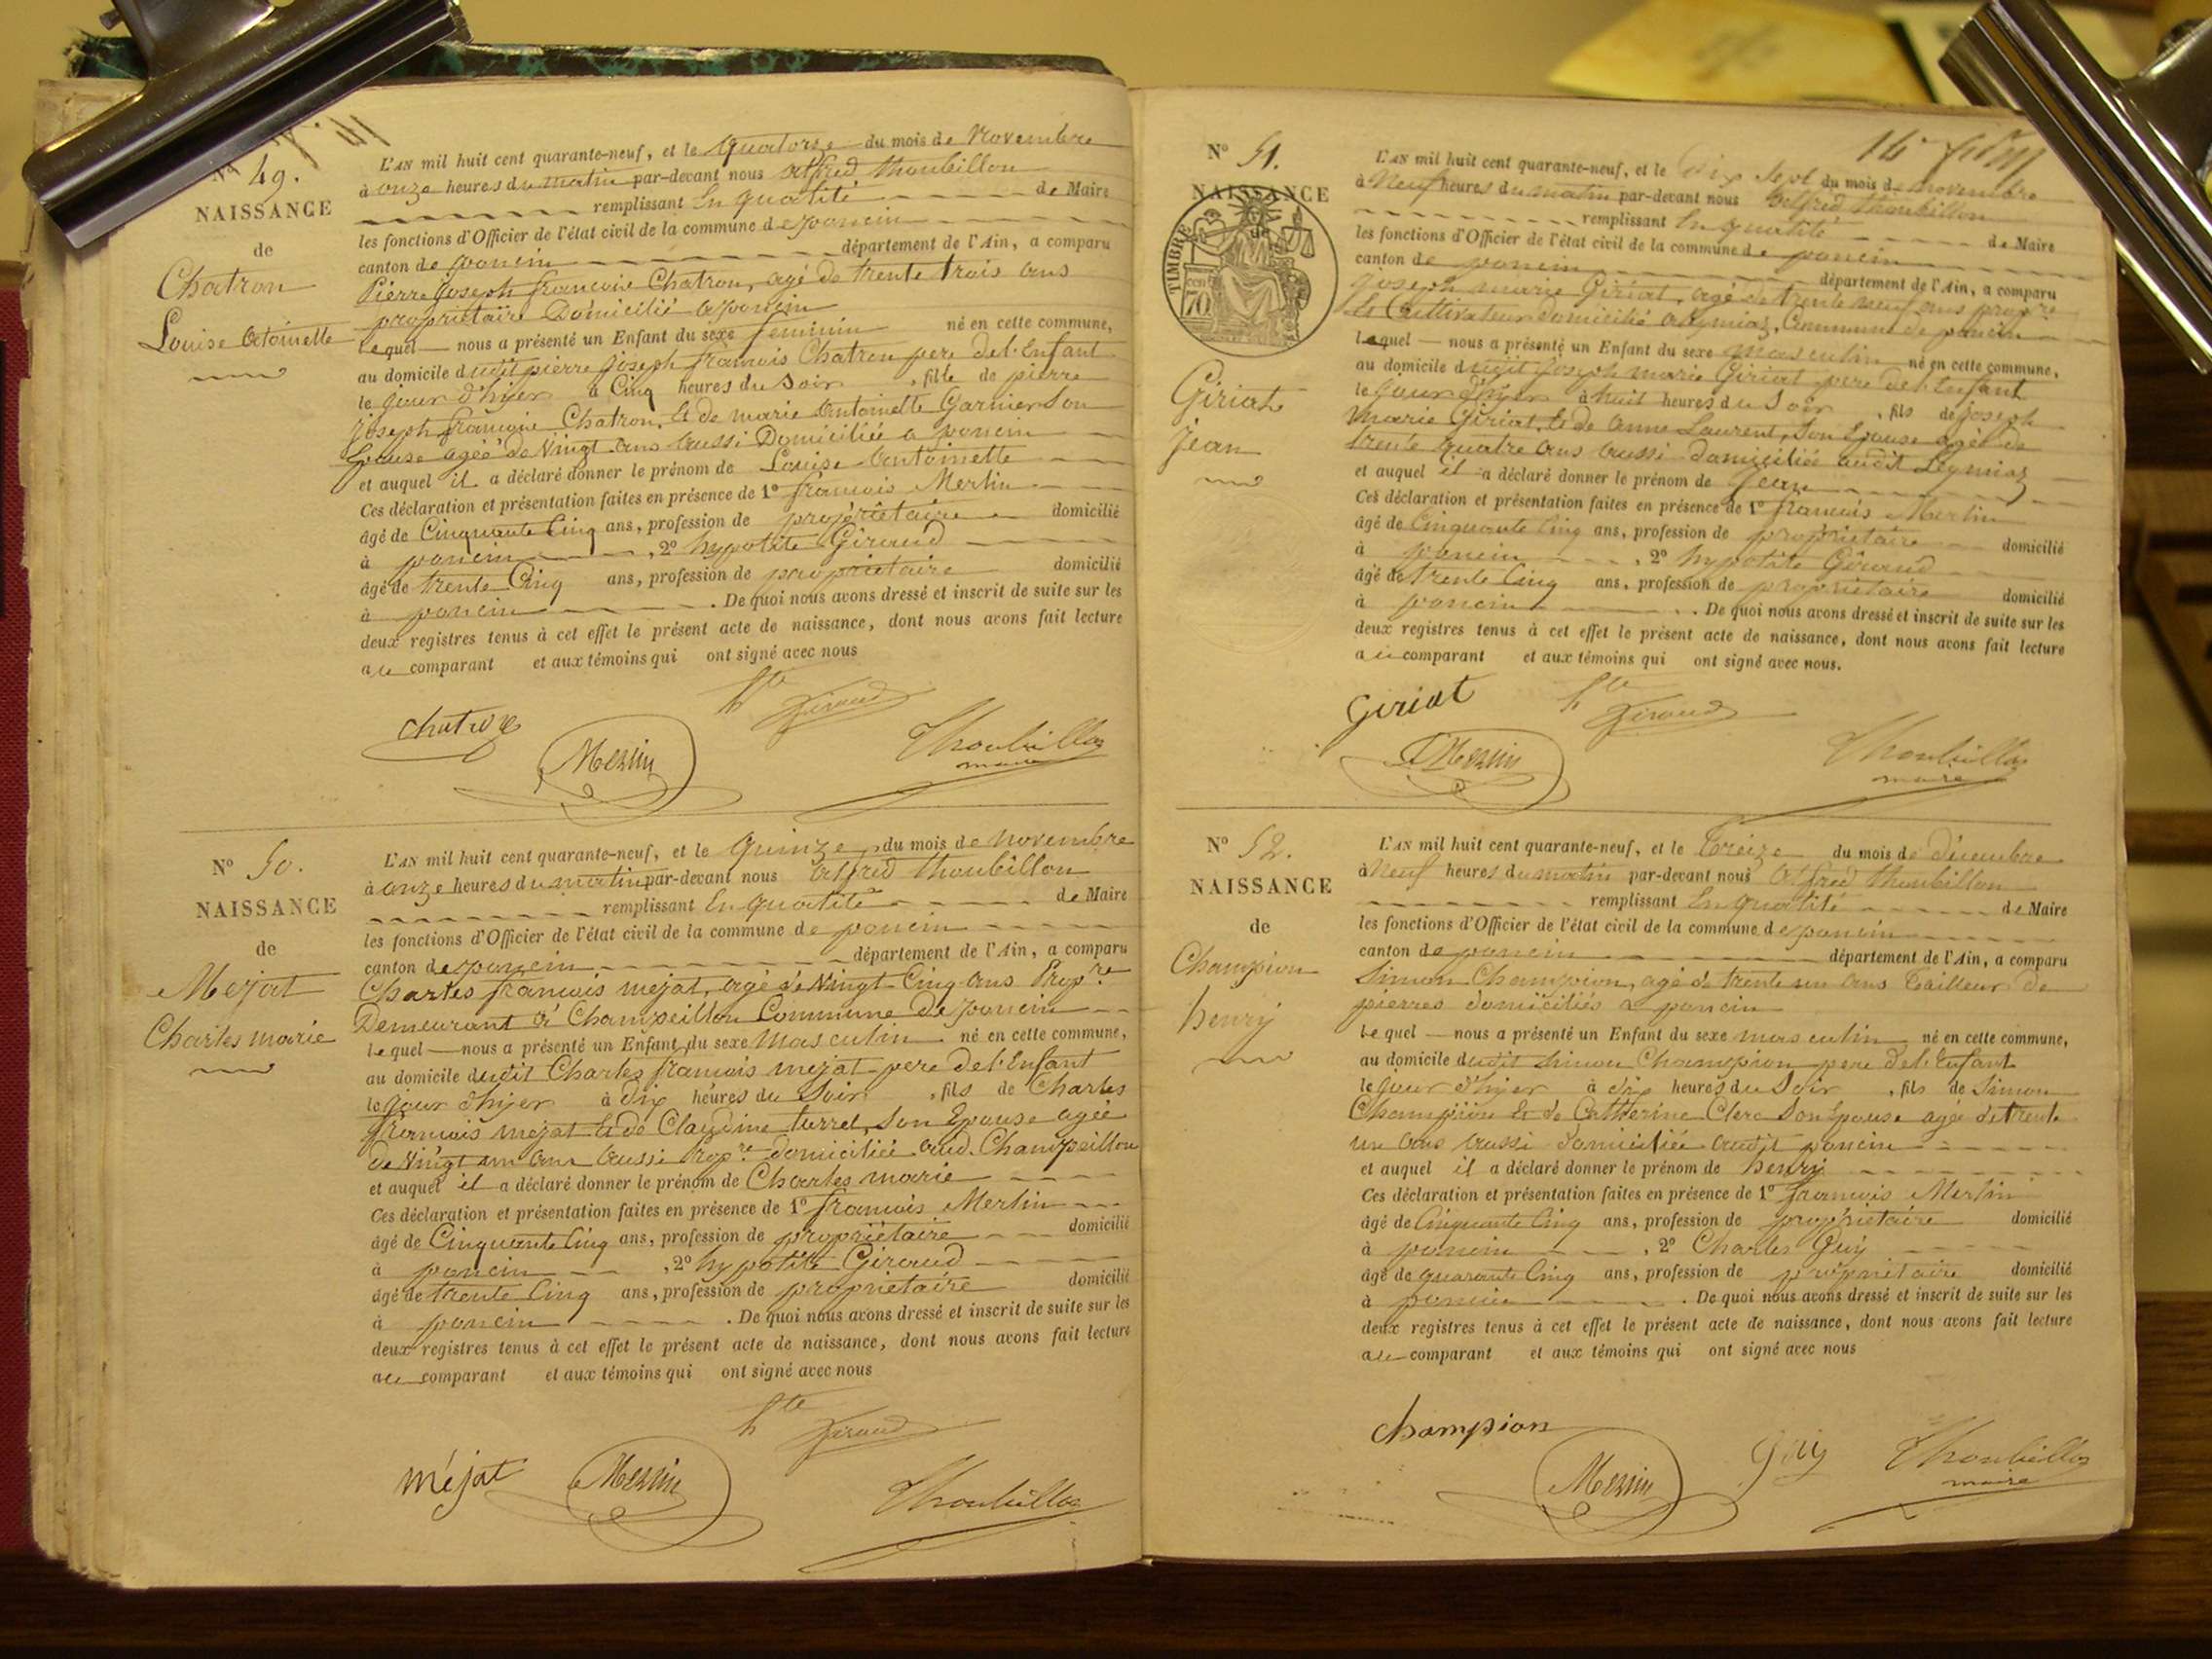 Nº 49.
NAISSANCE
de
Chatron
Louise Antoinette
L'AN mil huit cent quarante-neuf, et le quatorze du mois de Novembre
à onze heures du matin par-devant nous Alfred Thoubillon
remplissant En qualité de Maire
les fonctions d'Officier de l'état civil de la commune de poncin
canton de poncin département de l'Ain, a comparu
Pierre Joseph francois Chatron, agé de trente trois ans
propriétaire Domicilié a poncin
Lequel nous a présenté un Enfant du sexe feminin né en cette commune,
au domicile dudit pierre Joseph francois Chatron pere de l'Enfant
le jour d'hyer à Cinq heures du Soir, fille de pierre
Joseph francois Chatron, Et de marie Antoinette Garnier Son
Epouse agée de Vingt ans aussi Domiciliée a poncin
et auquel il a déclaré donner le prénom de Louise Antoinette
Ces déclaration et présentation faites en présence de 1º francois Merlin
âgé de Cinquante Cinq ans, profession de propriétaire domicilié
à poncin, 2º hypolite Giraud
âgé de trente Cinq ans, profession de propriétaire domicilié
à poncin. De quoi nous avons dressé et inscrit de suite sur les
deux registres tenus à cet effet le présent acte de naissance, dont nous avons fait lecture
au comparant et aux témoins qui ont signé avec nous
hte Giraud
Chatron
Merlin
Thoubillon
maire
Nº 50.
NAISSANCE
de
Mejat
Charles marie
L'AN mil huit cent quarante-neuf, et le quinze du mois de novembre
à onze heures du matin par-devant nous Alfred Thoubillon
remplissant En qualité de Maire
les fonctions d'Officier de l'état civil de la commune de poncin
canton de poncin département de l'Ain, a comparu
Charles francois mejat, agé de Vingt Cinq ans Propre
Demeurant à Champeillon Commune de poncin
Lequel nous a présenté un Enfant du sexe masculin né en cette commune,
au domicile dudit Charles francois mejat pere de l'Enfant
le jour d'hyer à dix heures du Soir, fils de Charles
francois mejat Et de Claudine turrel, Son Epouse agée
de Vingt un ans aussi Propre domiciliée aud. Champeillon
et auquel il a déclaré donner le prénom de Charles marie
Ces déclaration et présentation faites en présence de 1º francois Merlin
âgé de Cinquante Cinq ans, profession de propriétaire domicilié
à poncin, 2º hypolite Giraud
âgé de trente Cinq ans, profession de propriétaire domicilié
à poncin. De quoi nous avons dressé et inscrit de suite sur les
deux registres tenus à cet effet le présent acte de naissance, dont nous avons fait lecture
au comparant et aux témoins qui ont signé avec nous
hte Giraud
méjat
Merlin
Thoubillon
Nº 51.
NAISSANCE
de
TIMBRE
70
Giriat
Jean
L'AN mil huit cent quarante-neuf, et le Dix Sept du mois de novembre
à Neuf heures du matin par-devant nous Alfred Thoubillon
remplissant En qualité de Maire
les fonctions d'Officier de l'état civil de la commune de poncin
canton de poncin département de l'Ain, a comparu
Joseph marie Giriat, agé de trente neuf ans propre
Et Cultivateur domicilié a Leymiaz, Commune de poncin
Lequel nous a présenté un Enfant du sexe masculin né en cette commune,
au domicile dudit Joseph marie Giriat pere de l'Enfant
le jour d'hyer à huit heures du Soir, fils de Joseph
marie Giriat, Et de Anne Laurent, Son Epouse agée de
trente quatre ans aussi domiciliée audit Leymiaz
et auquel il a déclaré donner le prénom de Jean
Ces déclaration et présentation faites en présence de 1º francois Merlin
âgé de Cinquante Cinq ans, profession de propriétaire domicilié
à poncin, 2º hypolite Giraud
âgé de trente Cinq ans, profession de propriétaire domicilié
à poncin. De quoi nous avons dressé et inscrit de suite sur les
deux registres tenus à cet effet le présent acte de naissance, dont nous avons fait lecture
au comparant et aux témoins qui ont signé avec nous.
Giriat
hte Giraud
Merlin
Thoubillon
maire
Nº 52.
NAISSANCE
de
Champion
henry
L'AN mil huit cent quarante-neuf, et le Treize du mois de décembre
à Neuf heures du matin par-devant nous Alfred Thoubillon
remplissant En qualité de Maire
les fonctions d'Officier de l'état civil de la commune de poncin
canton de poncin département de l'Ain, a comparu
Simon Champion, agé de trente un ans tailleur de
pierres domiciliés a poncin
Lequel nous a présenté un Enfant du sexe masculin né en cette commune,
au domicile dudit Simon Champion pere de l'Enfant
le jour d'hyer à dix heures du Soir, fils de Simon
Champion Et de Catherine Clerc Son Epouse agée de trente
un ans aussi domiciliée audit poncin
et auquel il a déclaré donner le prénom de henry
Ces déclaration et présentation faites en présence de 1º francois Merlin
âgé de Cinquante Cinq ans, profession de propriétaire domicilié
à poncin, 2º Charles Guy
âgé de quarante Cinq ans, profession de propriétaire domicilié
à poncin. De quoi nous avons dressé et inscrit de suite sur les
deux registres tenus à cet effet le présent acte de naissance, dont nous avons fait lecture
au comparant et aux témoins qui ont signé avec nous
Champion
Merlin
Guy
Thoubillon
maire